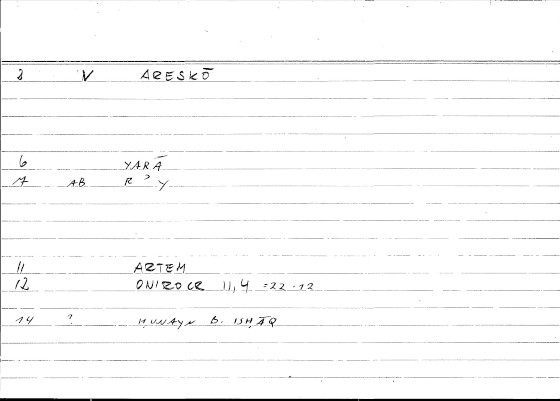 3 V ARESKŌ
6 YARĀ
7 AB R ʾ Y
11 ARTEM
12 ONIROCR 11,4 =22.12
14 ? ḤUNAYN B. ISḤĀQ